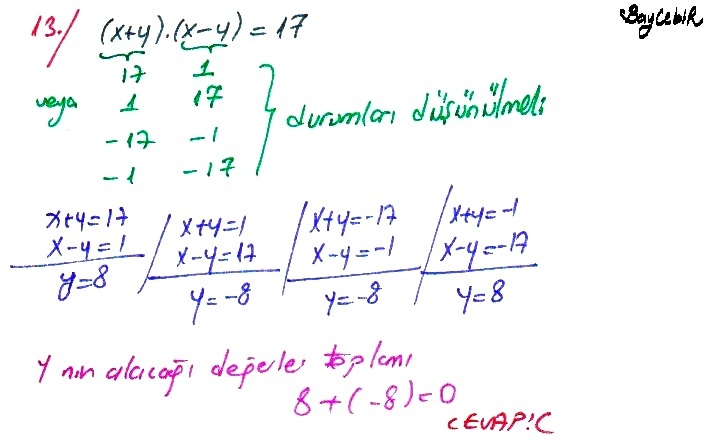 BayCebir
13./ (x+y).(x-y) = 17
17 1
veya 1 17
-17 -1
-1 -17
durumları düşünülmeli
x+y=17 / x+y=1 / x+y=-17 / x+y=-1
x-y=1 x-y=17 x-y=-1 x-y=-17
y=8 y=-8 y=-8 y=8
y nin alacağı değerler toplamı
8+(-8)=0
CEVAP:C